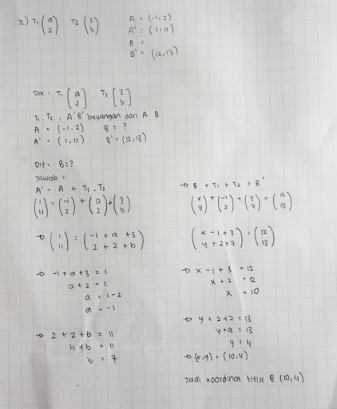 2) T₁ (a 2) T₂ (3 b) A = (-1,2)
A' = (1,11)
B =
B' = (12,13)
Dik = T₁ (a 2) T₂ (3 b)
T₁, T₂, A' B' bayangan dari A B
A = (-1,2) B = ?
A' = (1,11) B' = (12,13)
Dit = B = ?
Jawab =
A' = A + T₁ + T₂
(1 11) = (-1 2) + (a 2) + (3 b)
→ (1 11) = (-1 + a + 3 2 + 2 + b)
→ -1 + a + 3 = 1
a + 2 = 1
a = 1 - 2
a = -1
→ 2 + 2 + b = 11
4 + b = 11
b = 7
→ B + T₁ + T₂ = B'
(x y) + (-1 2) + (3 7) = (12 13)
(x - 1 + 3 y + 2 + 7) = (12 13)
→ x - 1 + 3 = 12
x + 2 = 12
x = 10
→ y + 2 + 7 = 13
y + 9 = 13
y = 4
→ (x,y) = (10,4)
Jadi koordinat titik B (10,4)